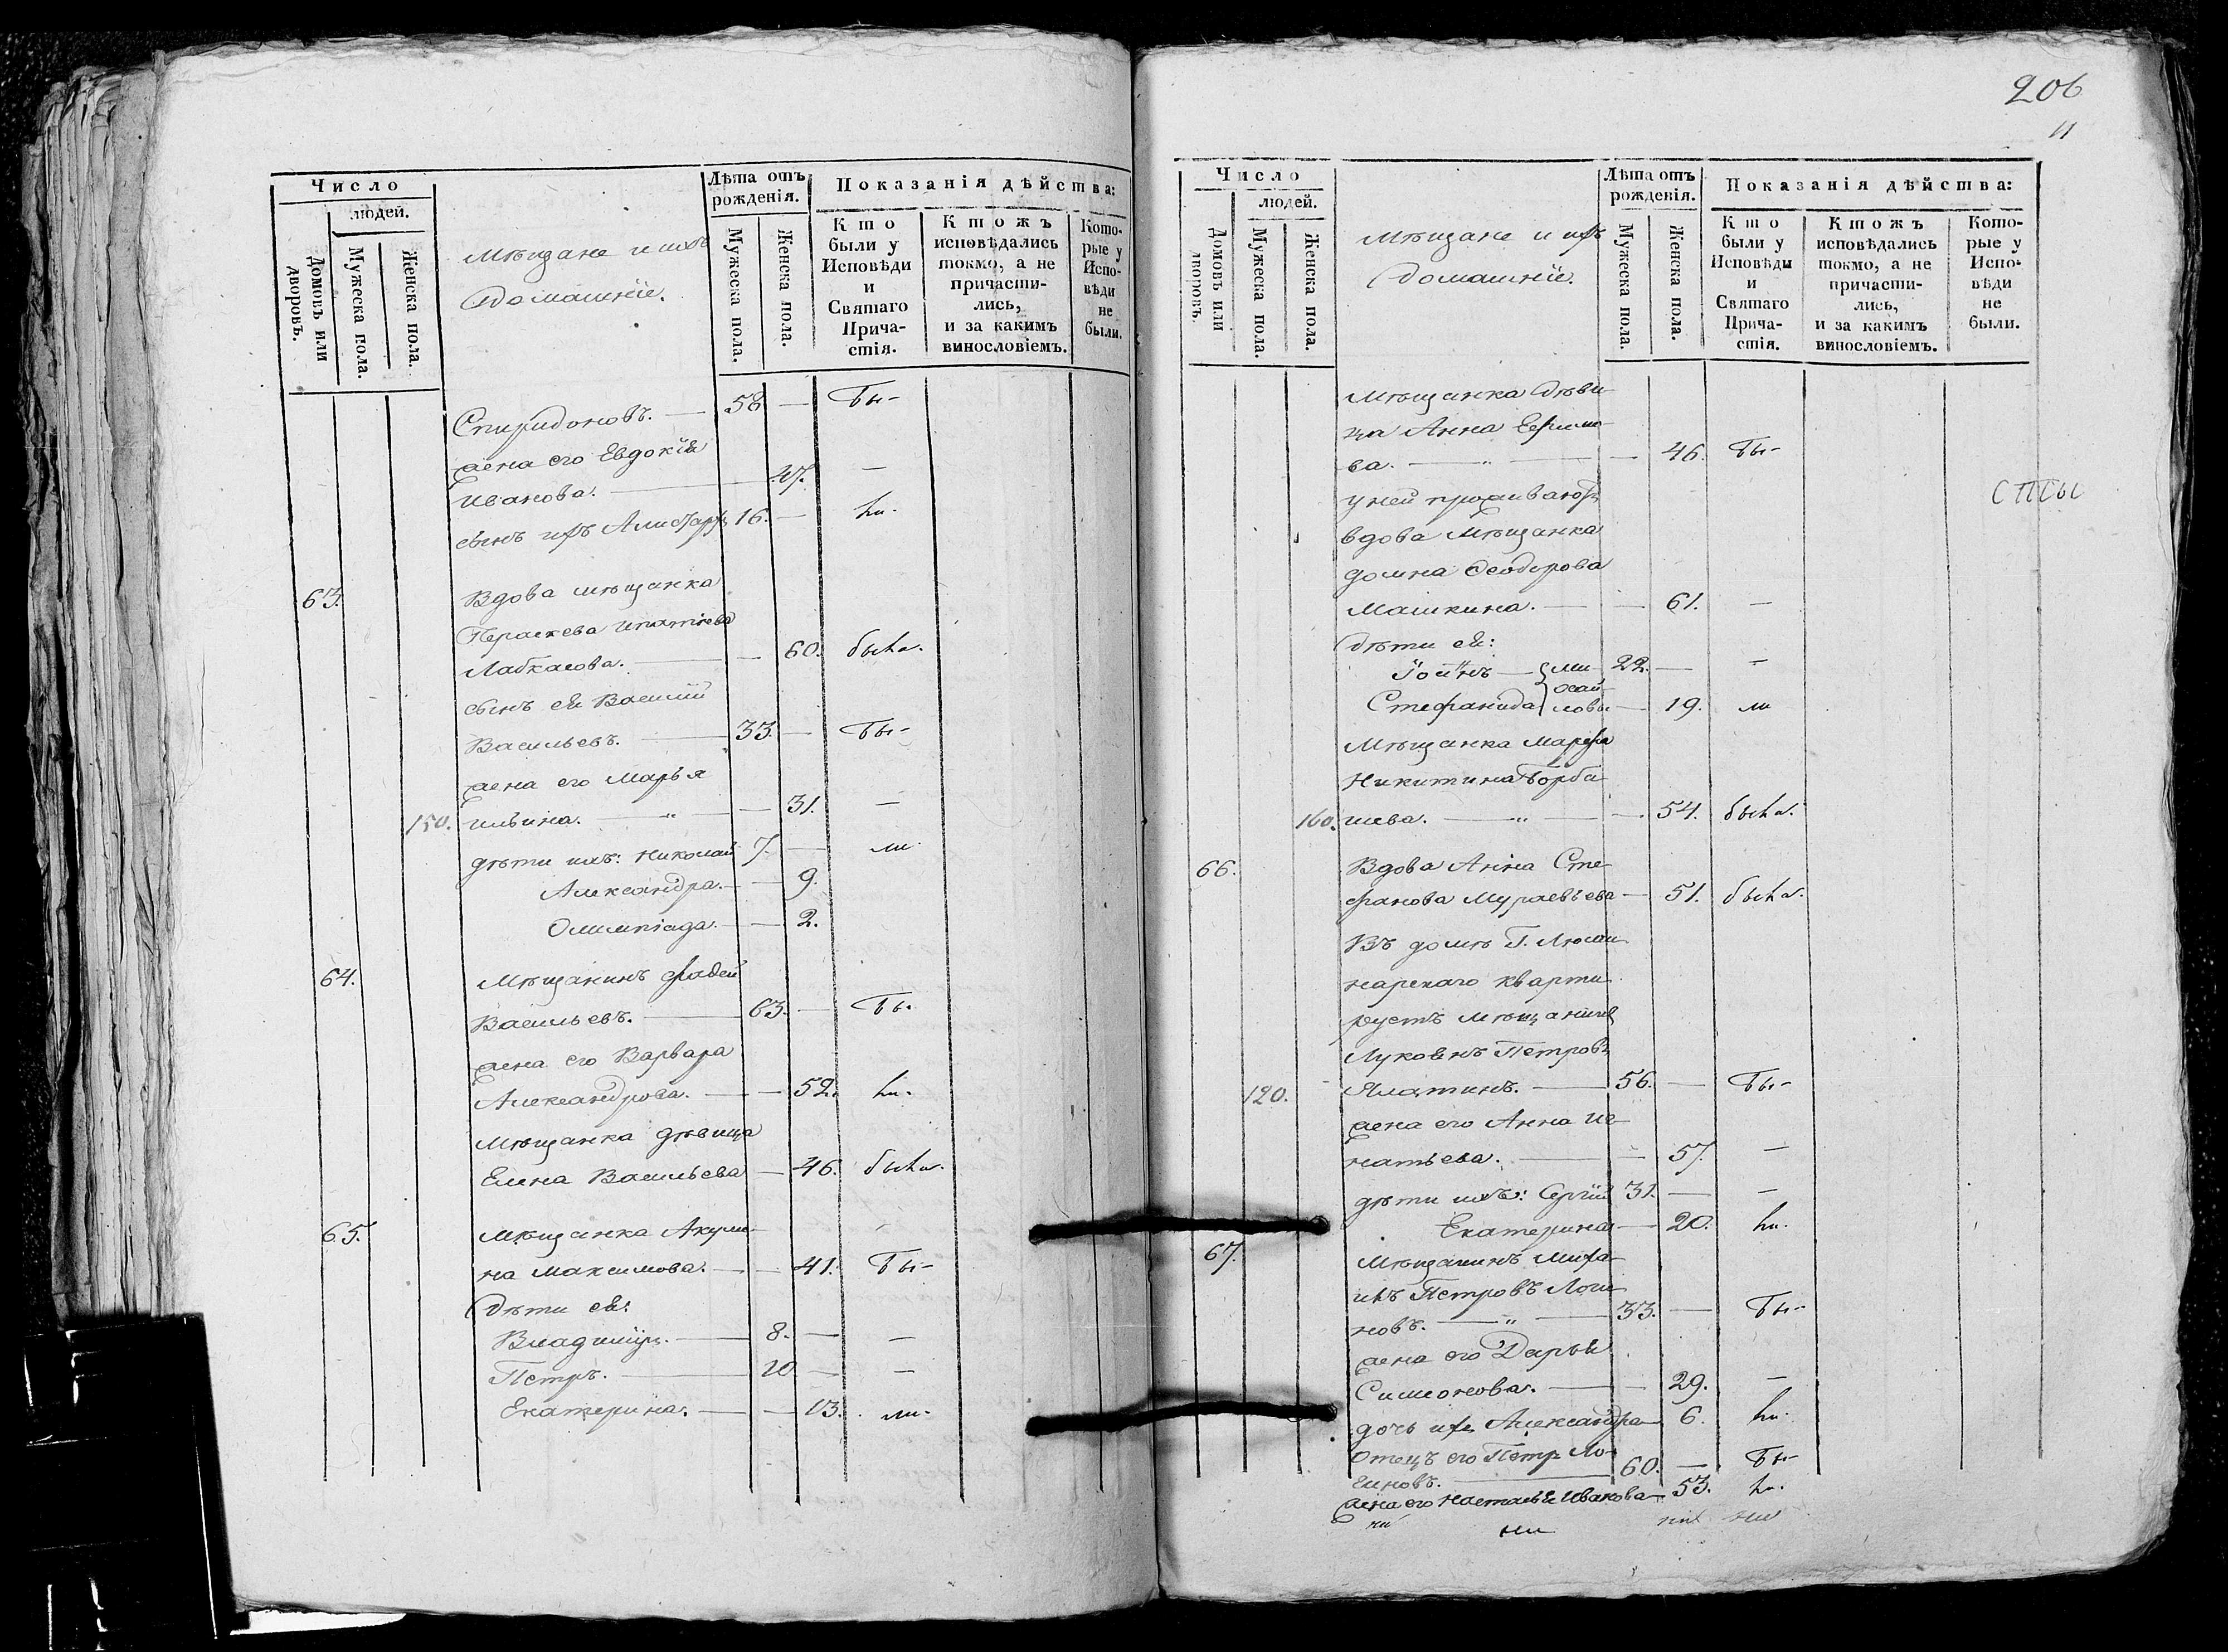 206
11
Число
людей.
Домовъ или дворовъ.
Мужеска пола.
Женска пола.
Мѣщане и ихъ
домашніе.
Лѣта отъ
рожденія.
Мужеска пола.
Женска пола.
Показанія дѣйства:
Кто
были у
Исповѣди
и
Святаго
Прича-
стія.
Ктожъ
исповѣдались
токмо, а не
причасти-
лись,
и за какимъ
винословіемъ.
Кото-
рые у
Испо-
вѣди
не
были.
Спиридоновъ. — 58 — Бы-
жена его Евдокія
Иванова. — 47. —
сынъ ихъ 16. — ли.
63. Вдова мѣщанка
Параскева Ипатіева
Лабкасова. — 60. была.
сынъ ея Василій
Васильевъ. — 33 — Бы-
жена его Марья
150. Ильина. — " — 31. —
дѣти ихъ: Николай 7. — ли.
Александра. — 9.
Олимпіада. — 2.
64. Мѣщанинъ Фадей
Васильевъ. — 63. — Бы-
жена его Варвара
Александрова. — 52. ли.
Мѣщанка дѣвица
Елена Васильева — 46. была.
65. Мѣщанка Акули-
на Максимова. — 41. Бы-
дѣти ея:
Владиміръ. — 8. — —
Петръ. — 10 — —
Екатерина. — 13. ли.
Число
людей.
Домовъ или дворовъ.
Мужеска пола.
Женска пола.
Мѣщане и ихъ
домашніе.
Лѣта отъ
рожденія.
Мужеска пола.
Женска пола.
Показанія дѣйства:
Кто
были у
Исповѣди
и
Святаго
Прича-
стія.
Ктожъ
исповѣдались
токмо, а не
причасти-
лись,
и за какимъ
винословіемъ.
Кото-
рые у
Испо-
вѣди
не
были.
Мѣщанка дѣви-
ца Анна Ефимо-
ва. — " — 46. Бы-
у ней проживаютъ
вдова Мѣщанка
Домна Феодорова
Машкина. — 61. —
дѣти ея:
Іоаннъ — ми- 22. — —
Стефанида хай-ловы — 19. ли
Мѣщанка Марфа
Никитина Горба-
160. шева. — " — 54. была.
66. Вдова Анна Сте-
фанова Муравьева — 51. была.
Въ домѣ Г.
нарскаго кварти-
руетъ Мѣщанинъ
Петровъ
120. 56. — Бы-
жена его Анна Иг-
натьева. — 57. —
дѣти ихъ: Сергій 31. — —
Екатерина — 20. ли.
67. Мѣщанинъ Миха-
илъ Петровъ Логи-
новъ. — " — 33. — Бы-
жена его Дарья
Симонова. — 29. —
дочь ихъ Александра — 6. ли.
Отецъ его Петръ Ло-
гиновъ. — 60. — Бы-
жена его Настасья Иванова — 53. ли.